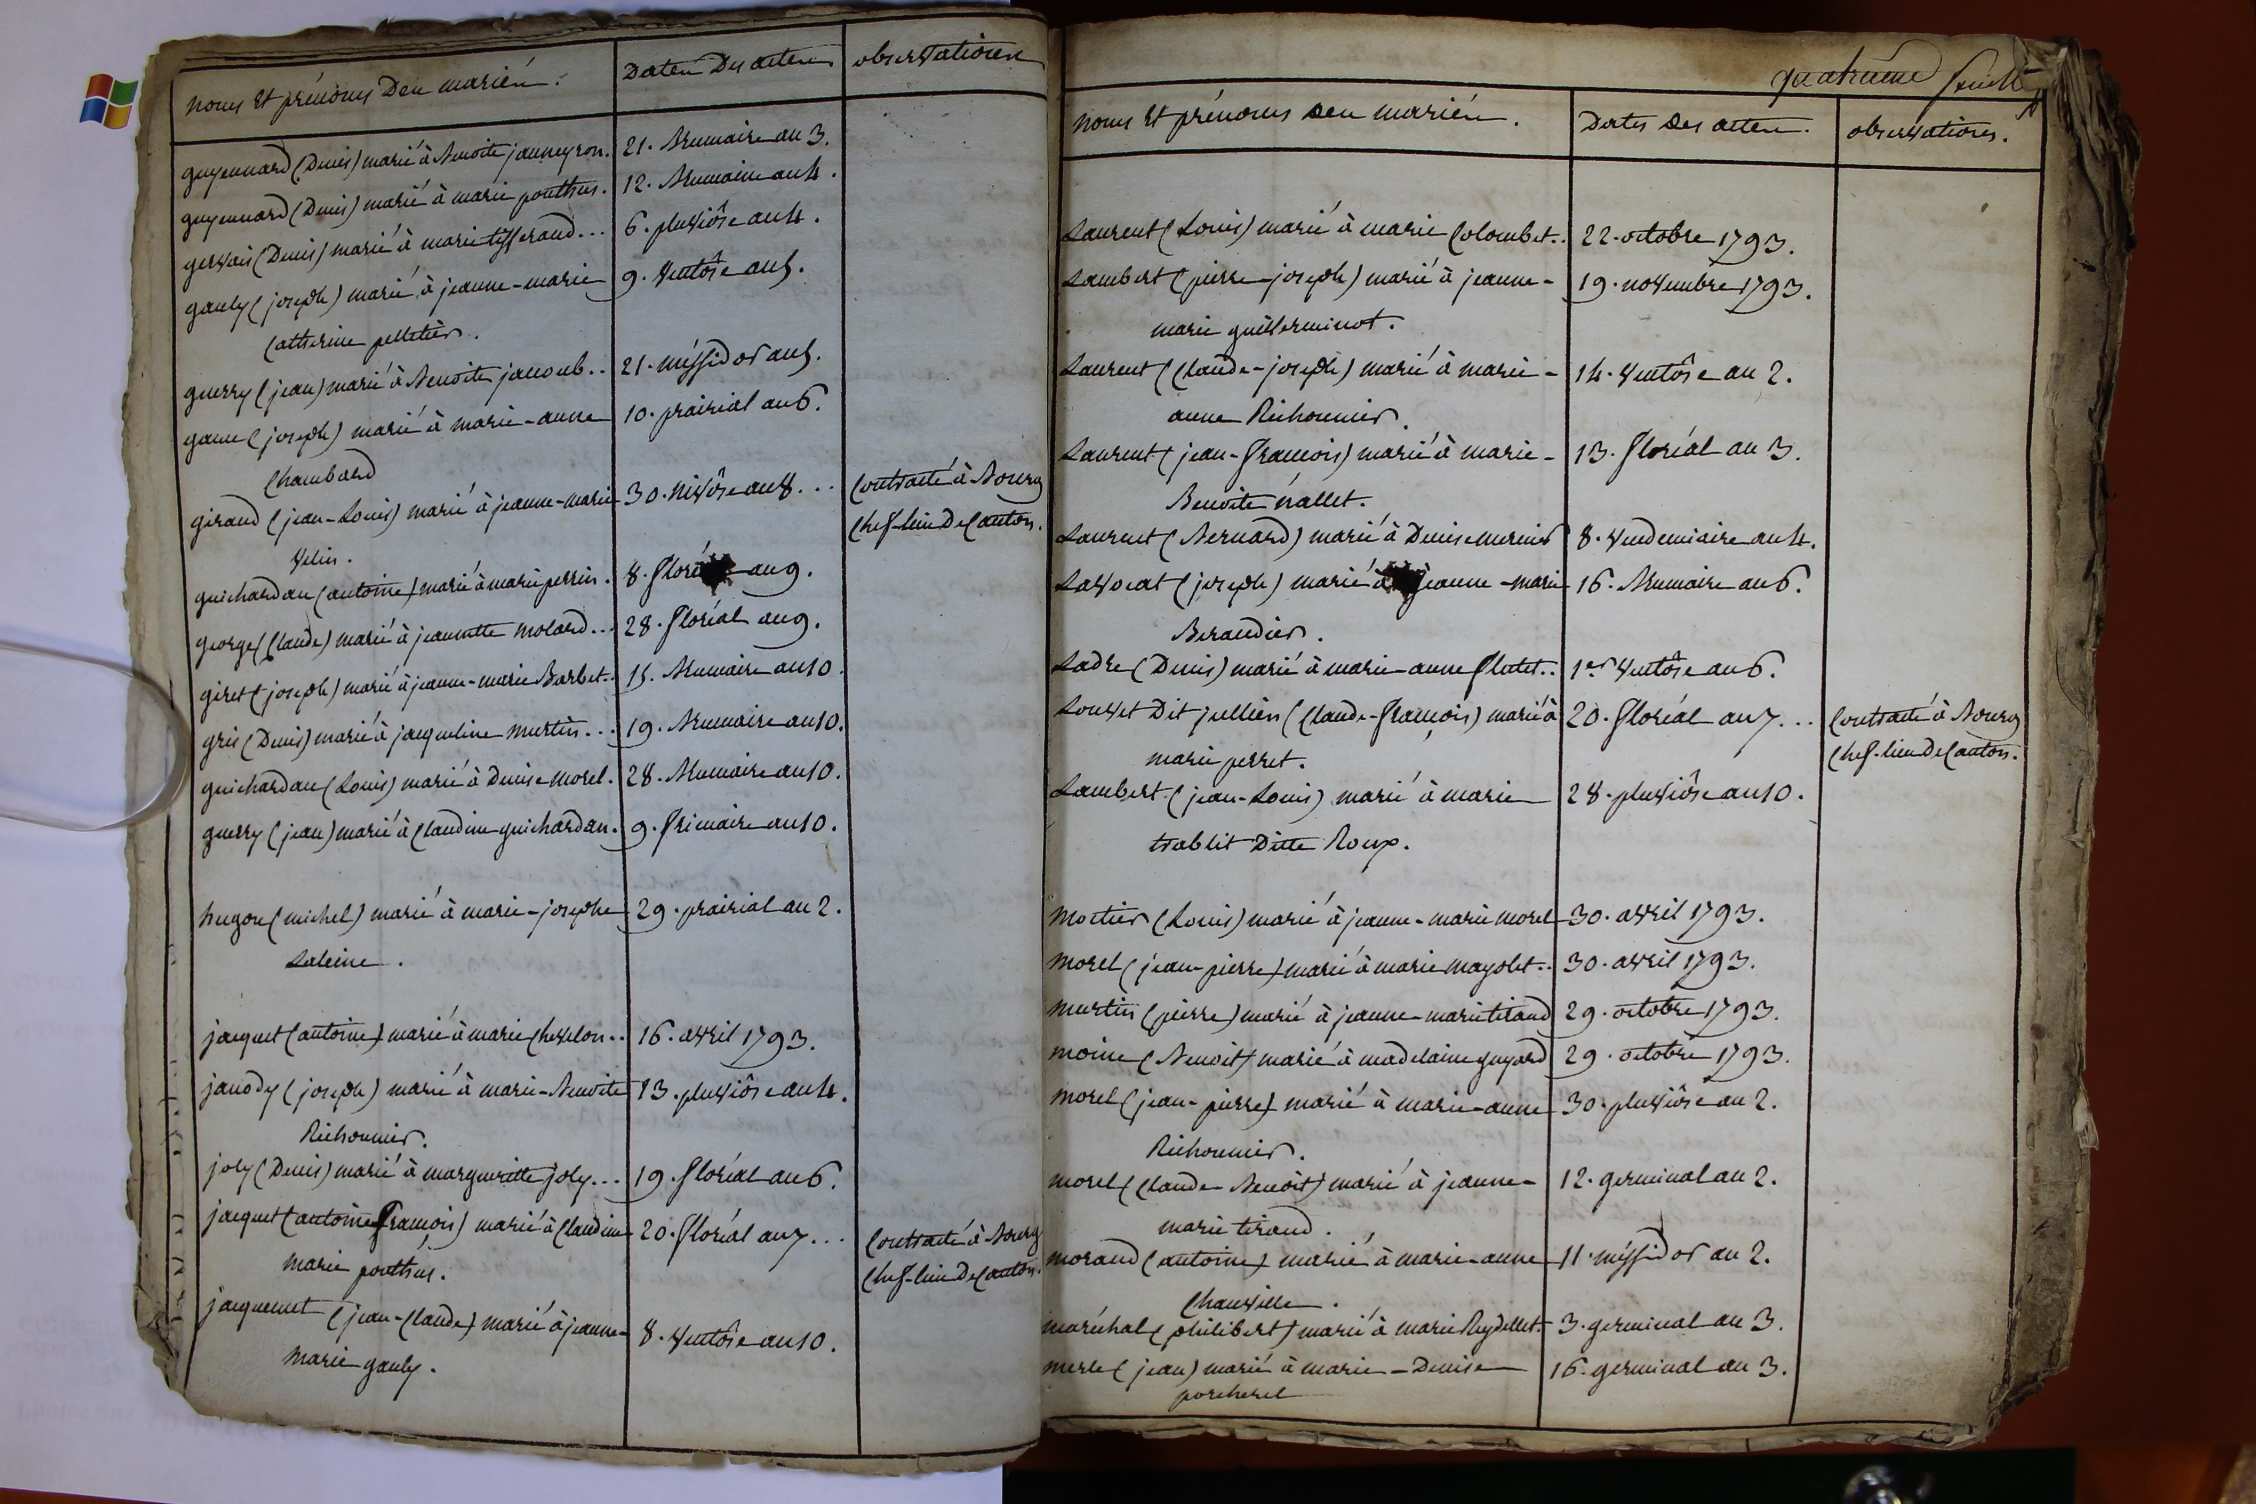 noms et prénoms des mariés.
Dates des actes
observations
guyennard (Denis) marié à Benoite janneyron.
21. Brumaire an 3.
guyennard (Denis) marié à marie pouthus.
12. Brumaire an 4.
gervais (Denis) marié à marie tisserand...
6. pluviôse an 4.
gauly (joseph) marié à jeanne-marie
9. Ventôse an 5.
Catherine pelletier.
guerry (jean) marié à Benoite jacoub..
21. méssidor an 5.
game (joseph) marié à marie-anne
10. prairial an 6.
Chambard
giraud (jean-Louis) marié à jeanne-marie
30. Nivôse an 8...
Contracté à Bourg
Velin.
Chef-lieu De Canton.
guichardan (antoine) marié à marie perrin.
8. floréal an 9.
george (Claude) marié à jeannette molard...
28. floréal an 9.
giret (joseph) marié à jeanne-marie Barbet..
15. Brumaire an 10.
gris (Denis) marié à jacqueline murtin...
19. Brumaire an 10.
guichardan (Louis) marié à Denise morel.
28. Brumaire an 10.
guerry (jean) marié à Claudine guichardan.
9. frimaire an 10.
hugon (michel) marié à marie-josephe
29. prairial an 2.
Saleine.
jacquet (antoine) marié à marie Chevelon..
16. avril 1793.
janody (joseph) marié à marie-Benoite
13. pluviôse an 4.
Richonnier.
joly (Denis) marié à margueritte joly...
19. floréal an 6.
jacquet (antoine françois) marié à Claudine
20. floréal an 7...
Contracté à Bourg
marie pouthus.
Chef-lieu De Canton.
jacquemet (jean-Claude) marié à jeanne-
8. Ventôse an 10.
marie gauly.
quatrieme feuillet
noms et prénoms des mariés.
Dates des actes.
observations.
Laurent (Louis) marié à marie Colombet..
22. octobre 1793.
Lambert (pierre-joseph) marié à jeanne-
19. novembre 1793.
marie guillerminot.
Laurent (Claude-joseph) marié à marie-
14. Ventôse an 2.
anne Richonnier.
Laurent (jean-françois) marié à marie-
13. floréal an 3.
Benoite
Laurent (Bernard) marié à Denise mercier
8. Vendemiaire an 4.
Lavocat (joseph) marié à jeanne-marie
16. Brumaire an 6.
Beraudier.
Ladre (Denis) marié à marie anne flutet..
1er Ventôse an 6.
Louvet Dit jullien (Claude-françois) marié à
20. floréal an 7...
Contracté à Bourg
marie perret.
Chef-lieu De Canton.
Lambert (jean-Louis) marié à marie
28. pluviôse an 10.
trablit Ditte Roup.
moitier (Louis) marié à jeanne-marie morel
30. avril 1793.
morel (jean-pierre) marié à marie mayolet..
30. avril 1793.
murtin (pierre) marié à jeanne-marie tirand
29. octobre 1793.
moine (Benoit) marié à madelaine guyard
29. octobre 1793.
morel (jean-pierre) marié à marie-anne
30. pluviôse an 2.
Richonnier.
morel (Claude-Benoit) marié à jeanne-
12. germinal an 2.
marie tirand.
morand (antoine) marié à marie-anne
11. méssidor an 2.
Chanville.
maréchal (philibert) marié à marie Reydellet.
3. germinal an 3.
merle (jean) marié à marie-Denise
16. germinal an 3.
porcherel